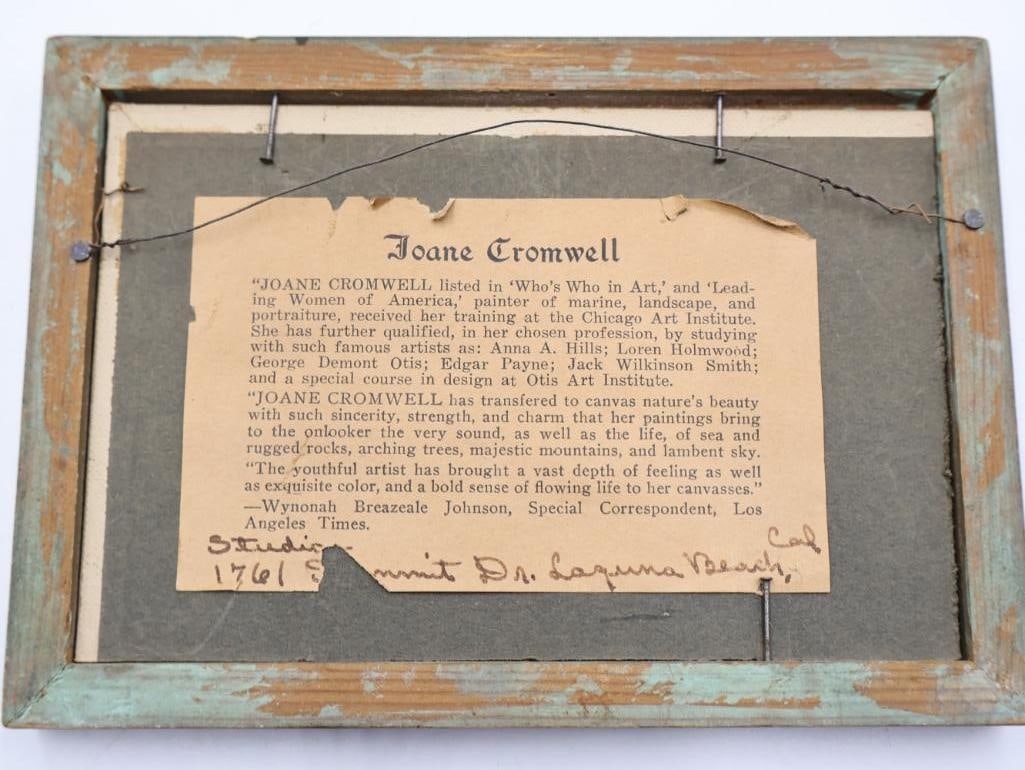 Joane Cromwell
“JOANE CROMWELL listed in ‘Who's Who in Art,’ and ‘Lead-
ing Women of America,’ painter of marine, landscape, and
portraiture, received her training at the Chicago Art Institute.
She has further qualified, in her chosen profession, by studying
with such famous artists as: Anna A. Hills; Loren Holmwood;
George Demont Otis; Edgar Payne; Jack Wilkinson Smith;
and a special course in design at Otis Art Institute.
“JOANE CROMWELL has transfered to canvas nature's beauty
with such sincerity, strength, and charm that her paintings bring
to the onlooker the very sound, as well as the life, of sea and
rugged rocks, arching trees, majestic mountains, and lambent sky.
“The youthful artist has brought a vast depth of feeling as well
as exquisite color, and a bold sense of flowing life to her canvasses.”
—Wynonah Breazeale Johnson, Special Correspondent, Los
Angeles Times.
Studio
1761 Dr. Laguna Beach, Cal